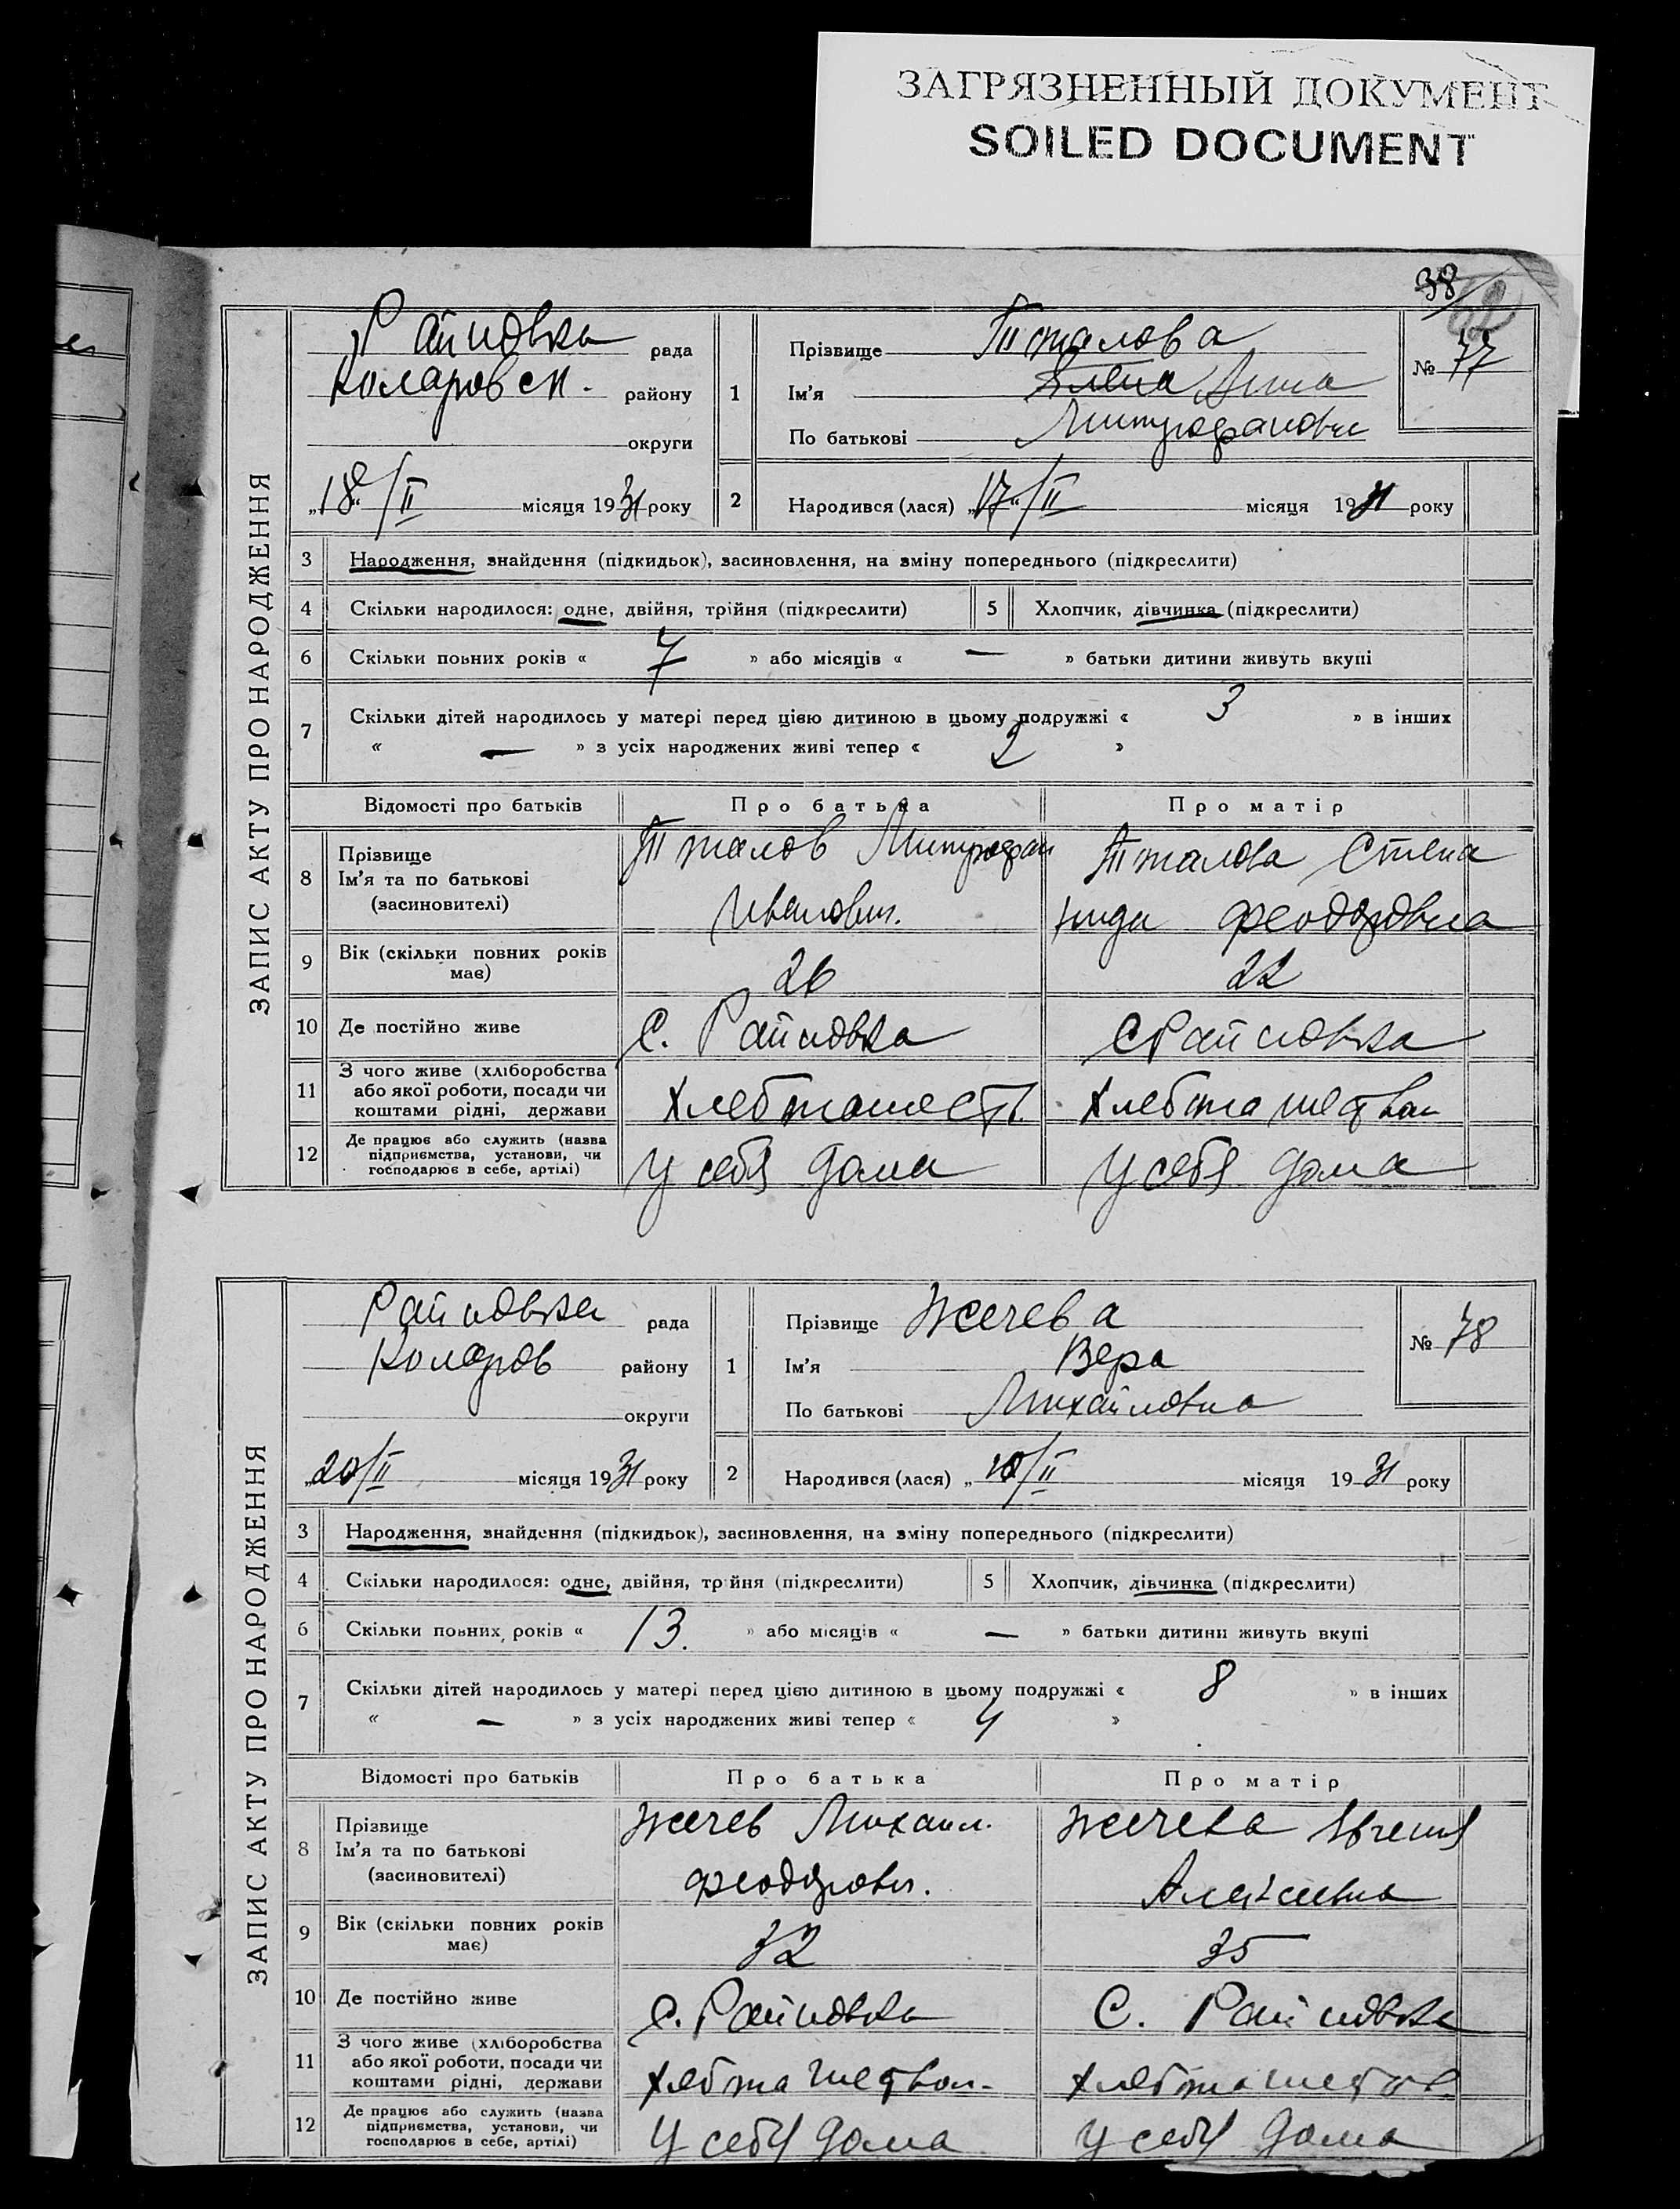 ЗАГРЯЗНЕННЫЙ ДОКУМЕНТ
SOILED DOCUMENT
38
ЗАПИС АКТУ ПРО НАРОДЖЕННЯ
Райновка рада
Коларовск. району
округи
„18“/II місяця 1931 року
1 Прізвище
Ім'я Елена Анна
По батькові Митрофановн
№ 77
2 Народився (лася) „17“/II місяця 1931 року
3 Народження, знайдення (підкидьок), засиновлення, на зміну попереднього (підкреслити)
4 Скільки народилося: одне, двійня, трійня (підкреслити) 5 Хлопчик, дівчинка (підкреслити)
6 Скільки повних років « 7 » або місяців « — » батьки дитини живуть вкупі
7 Скільки дітей народилось у матері перед цією дитиною в цьому подружжі « 3 » в інших
« — » з усіх народжених живі тепер « 2 »
Відомості про батьків Про батька Про матір
8 Прізвище
Ім'я та по батькові
(засиновителі)
Митрофан
Иванович.
Степа
нида Феодоровна
9 Вік (скільки повних років має) 26 22
10 Де постійно живе С. Райновка С Райновка
11 З чого живе (хліборобства
або якої роботи, посади чи
коштами рідні, держави
12 Де працює або служить (назва
підприємства, установи, чи
господарює в себе, артілі)
У себя дома У себя дома
ЗАПИС АКТУ ПРО НАРОДЖЕННЯ
Райновка рада
Коларов району
округи
„20/II місяця 1931 року
1 Прізвище Жечева
Ім'я Вера
По батькові Михайловна
№ 78
2 Народився (лася) „ /II місяця 1931 року
3 Народження, знайдення (підкидьок), засиновлення, на зміну попереднього (підкреслити)
4 Скільки народилося: одне, двійня, трійня (підкреслити) 5 Хлопчик, дівчинка (підкреслити)
6 Скільки повних років « 13. » або місяців « — » батьки дитини живуть вкупі
7 Скільки дітей народилось у матері перед цією дитиною в цьому подружжі « 8 » в інших
« — » з усіх народжених живі тепер « 4 »
Відомості про батьків Про батька Про матір
8 Прізвище
Ім'я та по батькові
(засиновителі)
Жечев Михаил.
Феодорович.
Жечева
Алексеевна
9 Вік (скільки повних років має) 32 35
10 Де постійно живе С. Райновка С. Райновка
11 З чого живе (хліборобства
або якої роботи, посади чи
коштами рідні, держави
12 Де працює або служить (назва
підприємства, установи, чи
господарює в себе, артілі)
У себя дома У себя дома